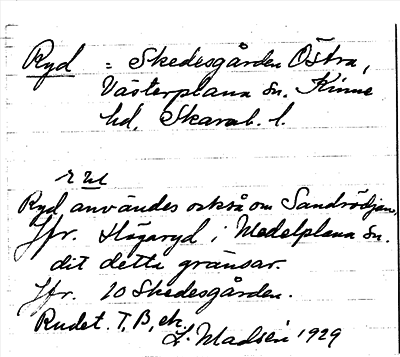 Ryd = Skedesgården Östra,
Västerplana sn. Kinne
hd. Skarab. l.
Ryd användes också om Sandrödjan,
Jfr. Högaryd i Medelplana sn.
dit detta gränsar.
Jfr. 10 Skedesgården.
Rudet. T, B, etc.
L. Madsén 1929